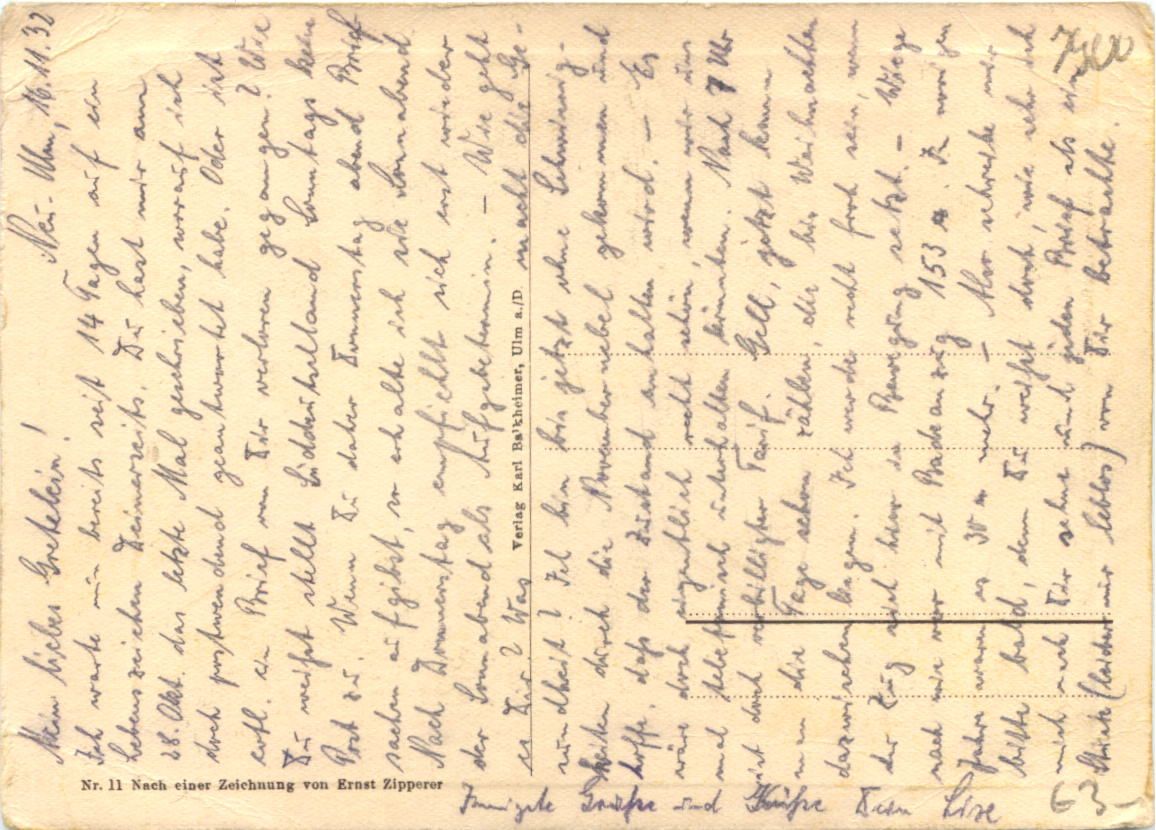 Neu-Ulm, 16.11.32
Mein liebes Gretelein!
Ich warte nun bereits seit 14 Tagen auf ein
Lebenszeichen Deinerseits. Du hast mir am
28. Okt. das letzte Mal geschrieben, worauf ich
doch postwendend geantwortet habe. Oder ist
evtl. ein Brief von Dir verloren gegangen? Wie
Du weißt stellt Süddeutschland Sonntags keine
Post zu. Wenn Du daher Donnerstag abend Brief
sachen aufgibst, so erhalte ich sie Sonnabend.
Nach Donnerstag empfiehlt sich erst wieder
der Sonnabend als Aufgabetermin. – Wie geht
es Dir? Was macht die Ge-
sundheit? Ich bin bis jetzt ohne Schwierig-
keiten durch die Novembernebel gekommen und
hoffe, daß der Zustand anhalten wird. – Es
wäre doch eigentlich recht schön, wenn wir uns
mal telefonisch unterhalten könnten. Nach 7 Uhr
ist doch verbilligter Tarif. Gell, jetzt kann
man die Tage schon zählen, die bis Weihnachten
dazwischen liegen. Ich werde recht froh sein, wenn
der Zug sich hier in Bewegung setzt. – Wiege
nach wie vor mit Badeanzug 153 a. Im vorigen
Jahre waren es 30 mehr. – Also schreibe mir
bitte bald, denn Du weißt doch, wie sehr ich
mich nach Dir sehne und jeden Brief als ein
Stück (leider nur leblos) von Dir betrachte.
Innigste Grüße und Küße Dein Lixe
Verlag Karl Balkheimer, Ulm a./D.
Nr. 11 Nach einer Zeichnung von Ernst Zipperer
63-